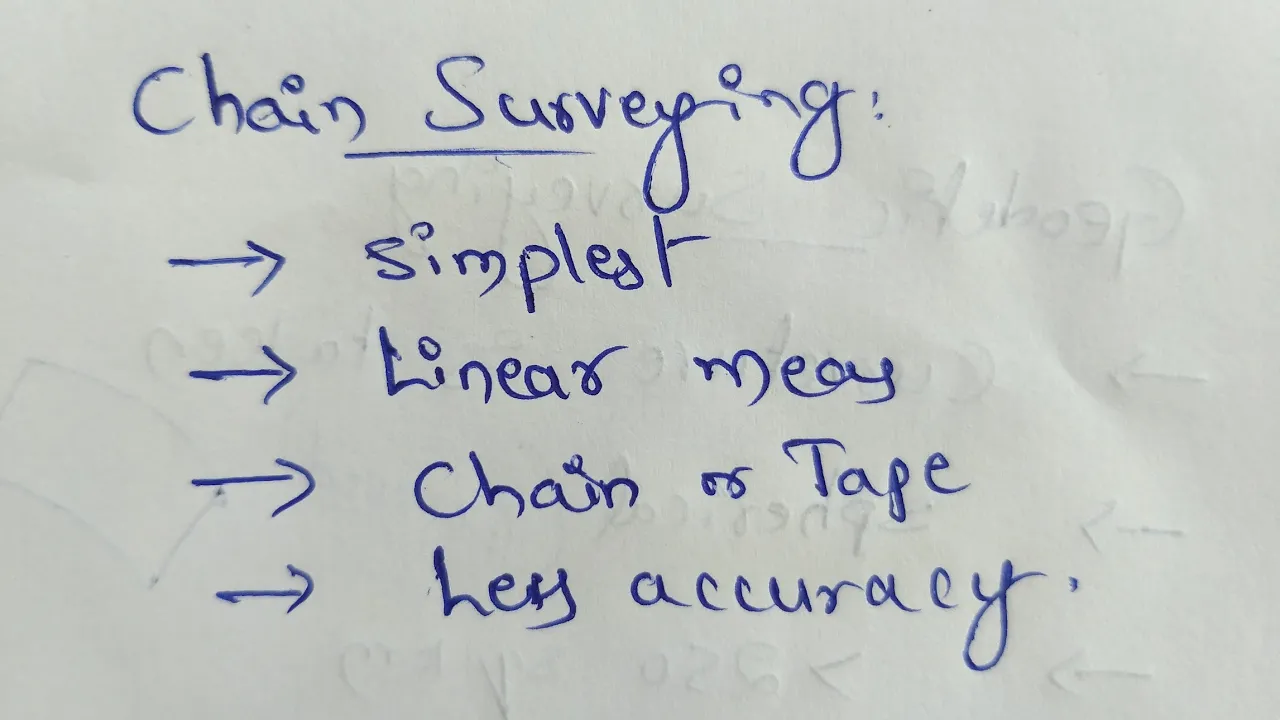 Chain Surveying:
→ Simplest
→ Linear meas
→ Chain or Tape
→ Less accuracy.
Geodetic Surveying